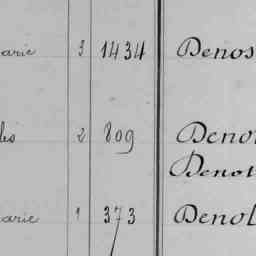 arie 3 1434 Denos
les 2 809 Deno
Denot
arie 1 373 Denol